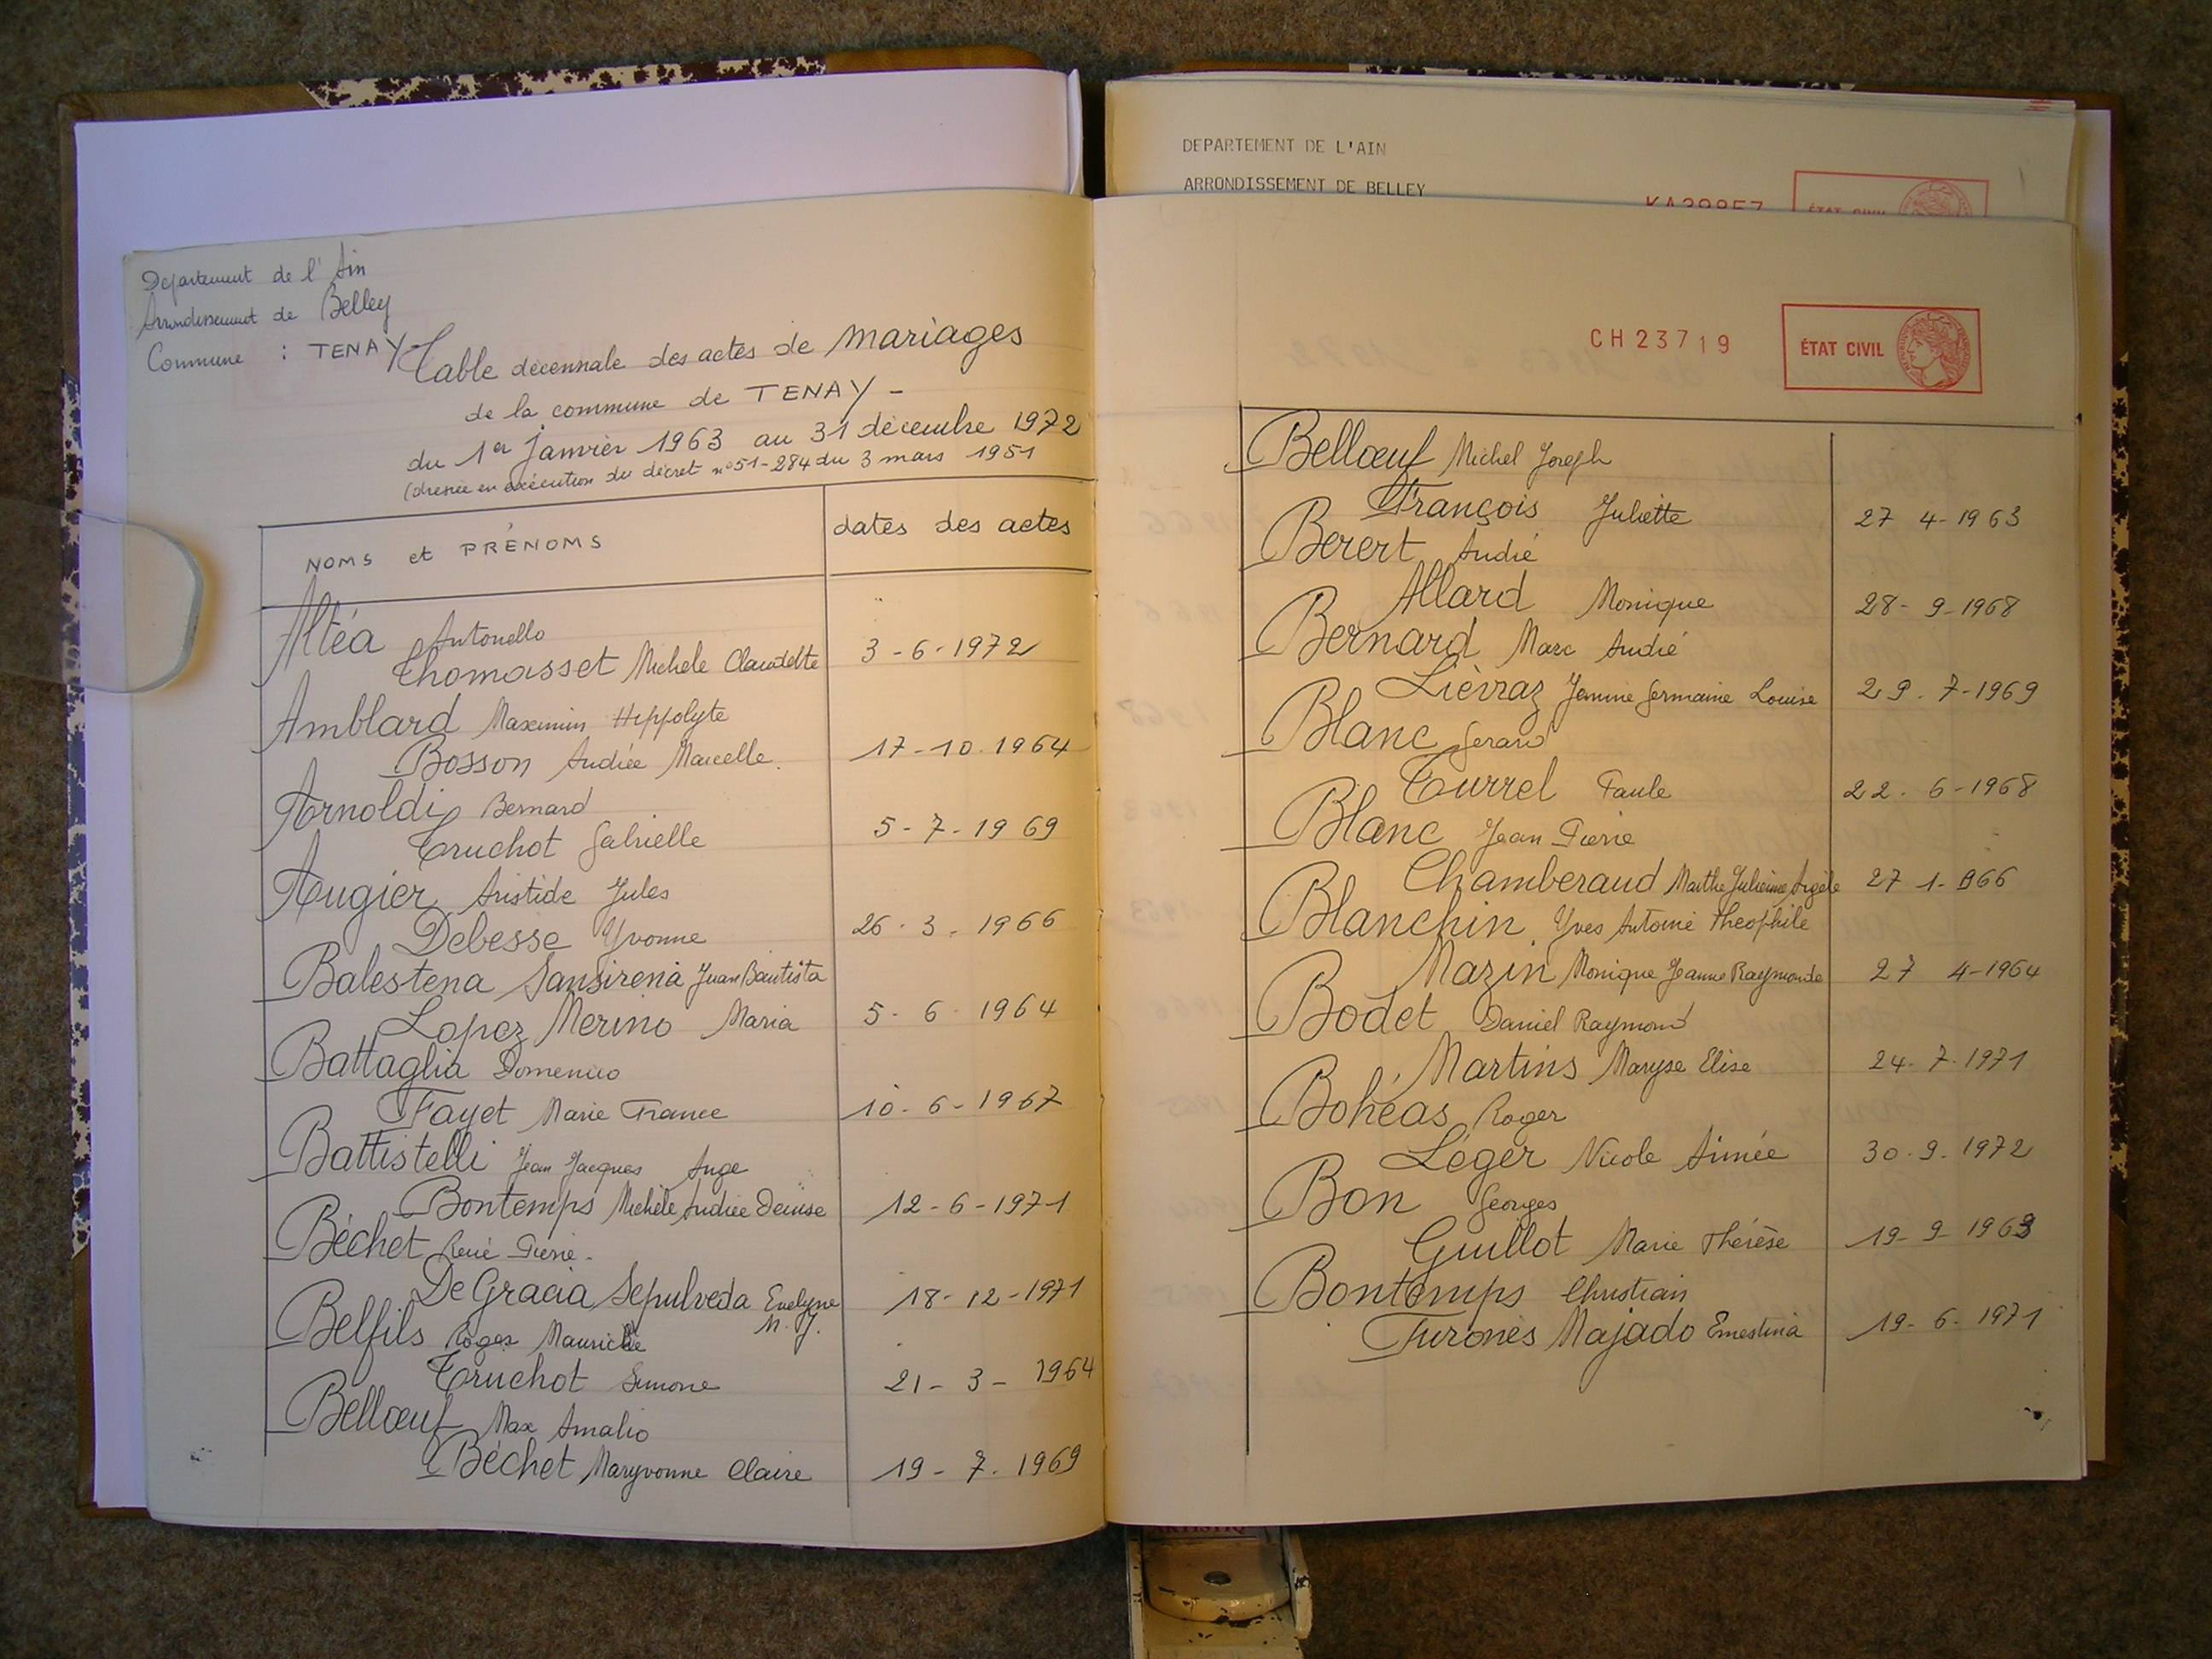 Departement de l'Ain
Arrondissement de Belley
Commune : TENAY
Table décennale des actes de mariages
de la commune de TENAY -
du 1er janvier 1963 au 31 décembre 1972
(dressée en exécution du décret n°51-284 du 3 mars 1951
NOMS et PRÉNOMS dates des actes
Altéa Antonello
Thomasset Michele Claudette 3-6-1972
Amblard Maximin Hippolyte
Bosson Andrée Marcelle. 17-10.1964
Arnoldi Bernard
Truchot Gabrielle 5-7-1969
Augier Aristide Jules
Debesse Yvonne 26.3.1966
Balestena Sansirena Juan Bautista
Lopez Merino Maria 5-6-1964
Battaglia Domenico
Fayet Marie France 10-6-1967
Battistelli Jean Jacques Ange
Bontemps Michèle Andrée Denise 12-6-1971
Béchet René Pierre.
De Gracia Sepulveda Evelyne M.J. 18-12-1971
Belfils Roger Maurice
Truchot Simone 21-3-1964
Bellœuf Max Amalio
Béchet Maryvonne Claire 19-7.1969
DEPARTEMENT DE L'AIN
ARRONDISSEMENT DE BELLEY
KA39857 ÉTAT CIVIL
CH23719 ÉTAT CIVIL
Bellœuf Michel Joseph
François Juliette 27 4-1963
Berert André
Allard Monique 28-9-1968
Bernard Marc André
Lièvraz Janine Germaine Louise 29.7-1969
Blanc Gerard
Turrel Paule 22.6-1968
Blanc Jean Pierre
Chamberaud Marthe Julienne Argèle 27 1-966
Blanchin Yves Antoine Theophile
Mazin Monique Jeanne Raymonde 27 4-1964
Bodet Daniel Raymond
Martins Maryse Elise 24-7-1971
Bohéas Roger
Léger Nicole Aimée 30.9.1972
Bon Georges
Guillot Marie Thérèse 19-9-1963
Bontemps Christian
Furones Majado Ernestina 19-6-1971